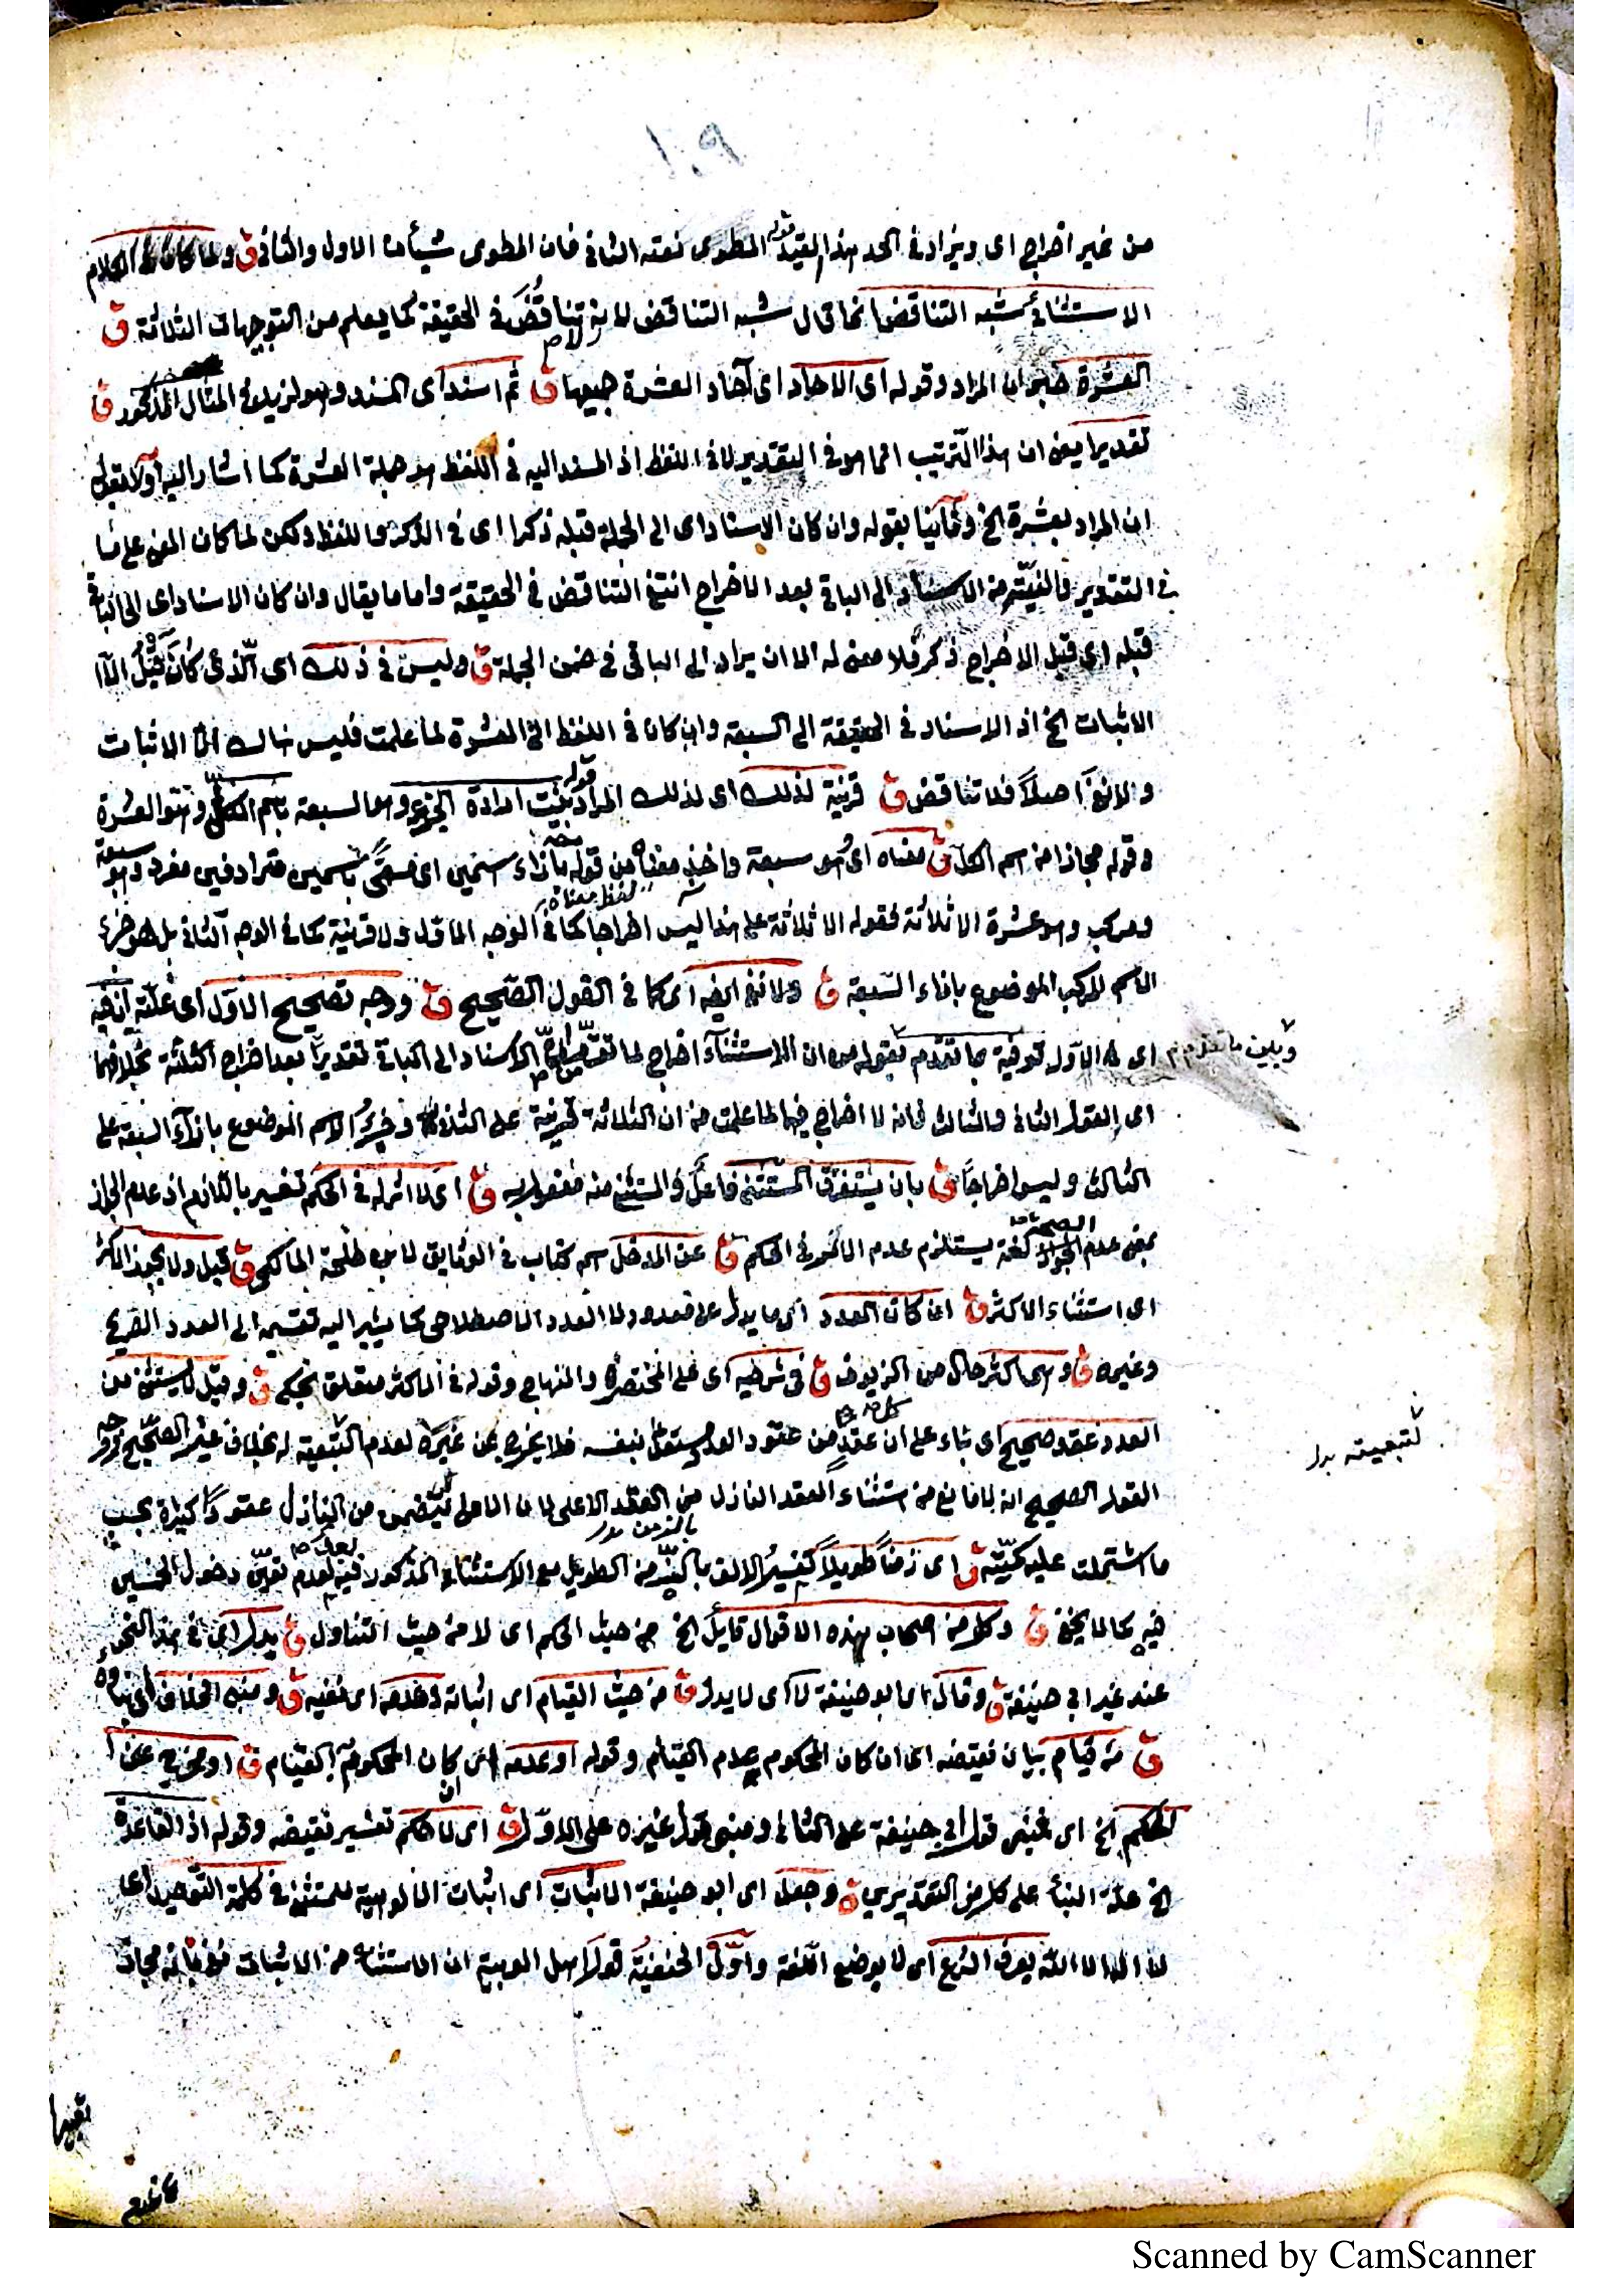 ١٠٩
من غير اخراج اى ويزاد فى الحد هذا القيد المطوى نعته الثانى فان المطوى شيأن الاول والثانى ق ولما كان فى الكلام
الاستثنائى شبه التناقض انما قال شبه التناقض لانه لا تناقض فى الحقيقة كما يعلم من التوجيهات الثلاثة ق
العشرة خبر ان المراد وقوله اى الاحاد اى آحاد العشرة جميعها ق ثم اسند اى المسند وهو لزيد فى المثال المذكور ق
تقديرا يعنى ان هذا الترتيب انما هو فى التقدير لا فى اللفظ اذ المسند اليه فى اللفظ هو جملة العشرة كما اشار اليه اولا بقوله
ان المراد بعشرة الخ وثانيا بقوله وان كان الاسناد اى الى الجملة قبله ذكرا اى فى الذكر واللفظ ولكن لما كان المعنى على ما
فى التقدير والنية من الاسناد الى الباقى بعد الاخراج انتفى التناقض فى الحقيقة واما ما يقال وان كان الاسناد اى الى الباقى
قبله اى قبل الاخراج ذكرا فلا معنى له الا ان يراد الى الباقى فى ضمن الجملة ق وليس فى ذلك اى الذى كان قبل الا
الاثبات الخ اذ الاسناد فى الحقيقة الى السبعة وان كان فى اللفظ الى العشرة لما علمت فليس هناك الا الاثبات
ولا نفى اصلا فلا تناقض ق قرينة لذلك اى لذلك المراد بينت ارادة الجزء وهو السبعة باسم الكل وهو العشرة
وقوله مجازا من اسم الكل ق معناه اى هو سبعة واخذ معناه من قوله بازاء اسمين اى مسمى باسمين مترادفين مفرد وهو سبعة
ومركب وهو عشرة الا ثلاثة فقوله الا ثلاثة على هذا ليس اخراجا كما فى الوجه الاول ولا قرينة كما فى الوجه الثانى بل هو جزء
الاسم المركب الموضوع بازاء السبعة ق ولا نفى ايضا اى كما فى القول الصحيح ق ووجه تصحيح الاول اى علته ان فيه
اى فى الاول توفية بما تقدم بقوله من ان الاستثناء اخراج لما تقدم من ان الاسناد الى الباقى تقديرا بعد اخراج الثلثة بخلافهما
وبين ما تقدم
اى القول الثانى والثالث فانه لا اخراج فيهما لما علمت من ان الثلاثة قرينة على الثانى وجزء الاسم الموضوع بازاء السبعة على
الثالث وليس اخراجا ق بان يستغرق المستثنى فاعل والمستثنى منه مفعول به ق اى لا اثر له فى الحكم تفسير باللازم اذ عدم الجواز
بمعنى عدم الصحة لغة يستلزم عدم الاثر فى الحكم ق عن المدخل اسم كتاب فى الوثايق لابن طلحة المالكى ق قيل ولا يجوز الاكثر
اى استثناء الاكثر ق ان كان العدد اى ما يدل على معدود لا العدد الاصطلاحى كما يشير اليه تقسيمه الى العدد الصريح
وغيره ق وهى اكثر حال من الزيوف ق فى شرحيه اى على المختصر والمنهاج وقوله فى الاكثر متعلق بحكى ق وقيل لا يستثنى من
العدد عقد صحيح اى بناء على ان كل عقد من عقود العدد مستقل بنفسه فلا يخرج عن غيره لعدم التبعية له بخلاف غير الصحيح ووجه
لتبعيته بدل
القول الصحيح انه لا مانع من استثناء العقد النازل من العقد الاعلى لان الاعلى يتضمن من النازل عقودا كثيرة بحسب
ما اشتملت عليه كميته ق اى زمنا طويلا كتفسير الالف بالزمن الطويل مع الاستثناء المذكور فيه لعدم تعين دخول الخمسين
فيه كما لا يخفى ق وكل من اصحاب هذه الاقوال قايل الخ من حيث الحكم اى لا من حيث التناول ق يدل اى فى هذا النحو
عند غير ابى حنيفة ق وقال اى ابو حنيفة لا اى لا يدل ق من حيث القيام اى اثباته وعدمه اى نفيه ق ومبنى الخلاف اى بناؤه
ق من قيام بيان نقيضه اى ان كان المحكوم به عدم القيام وقوله او عدمه اى ان كان المحكوم به القيام ق او مخرج عن ا
الحكم الخ اى فبنى قول ابى حنيفة على الثانى ومبنى قول غيره على الاول ق اى لا حكم تفسير نقيضه وقوله اذ القاعدة
الخ علة البناء على كل من التقديرين ق وجعل اى ابو حنيفة الاثبات اى اثبات الالوهية للمستثنى فى كلمة التوحيد اى
لا اله الا الله بعرف الشرع اى لا بوضع اللغة واول الحنفية قول اهل العربية ان الاستثناء من الاثبات نفى بانه مجاز
Scanned by CamScanner